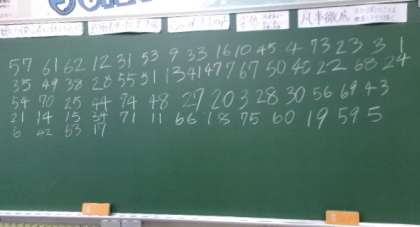 凡事徹底
57 61 62 12 31 53 9 33 16 10 45 4 73 23 3 1
35 49 38 28 55 51 13 41 47 7 67 50 46 22 68 24
54 70 25 44 74 48 27 20 3 28 30 56 69 43
21 14 15 34 71 11 66 18 75 60 19 59 5
6 42 63 17